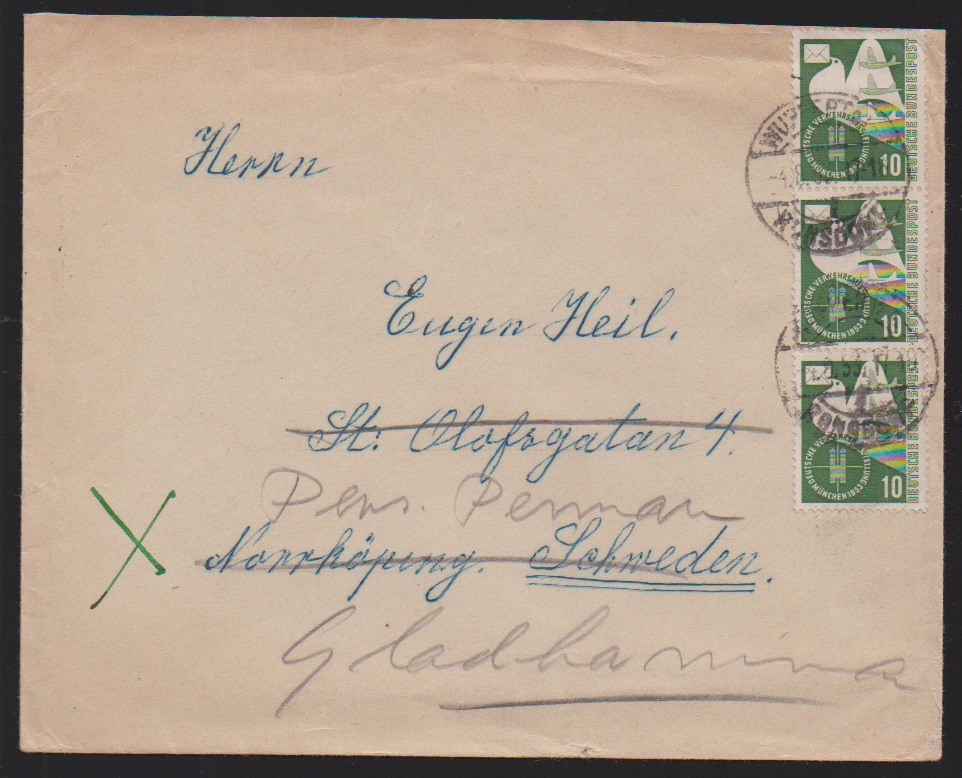 Herrn
Eugen Heil.
St: Olofsgatan 4.
Pens. Penman
Norrköping. Schweden.
Gladhammar
DEUTSCHE VERKEHRSAUSSTELLUNG MÜNCHEN 1953
10
DEUTSCHE BUNDESPOST
DEUTSCHE VERKEHRSAUSSTELLUNG MÜNCHEN 1953
10
DEUTSCHE BUNDESPOST
DEUTSCHE VERKEHRSAUSSTELLUNG MÜNCHEN 1953
10
DEUTSCHE BUNDESPOST
RONSDORF